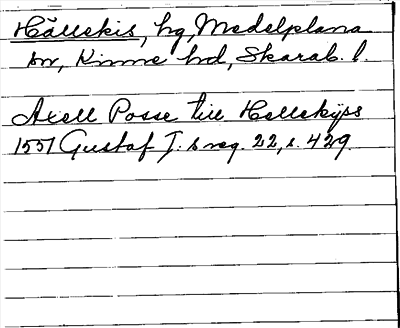 Hällekis, hg, Medelplana
sn, Kinne hd, Skarab. l.
Axell Posse till Hellekijss
1551 Gustaf I:s reg. 22, s. 429.